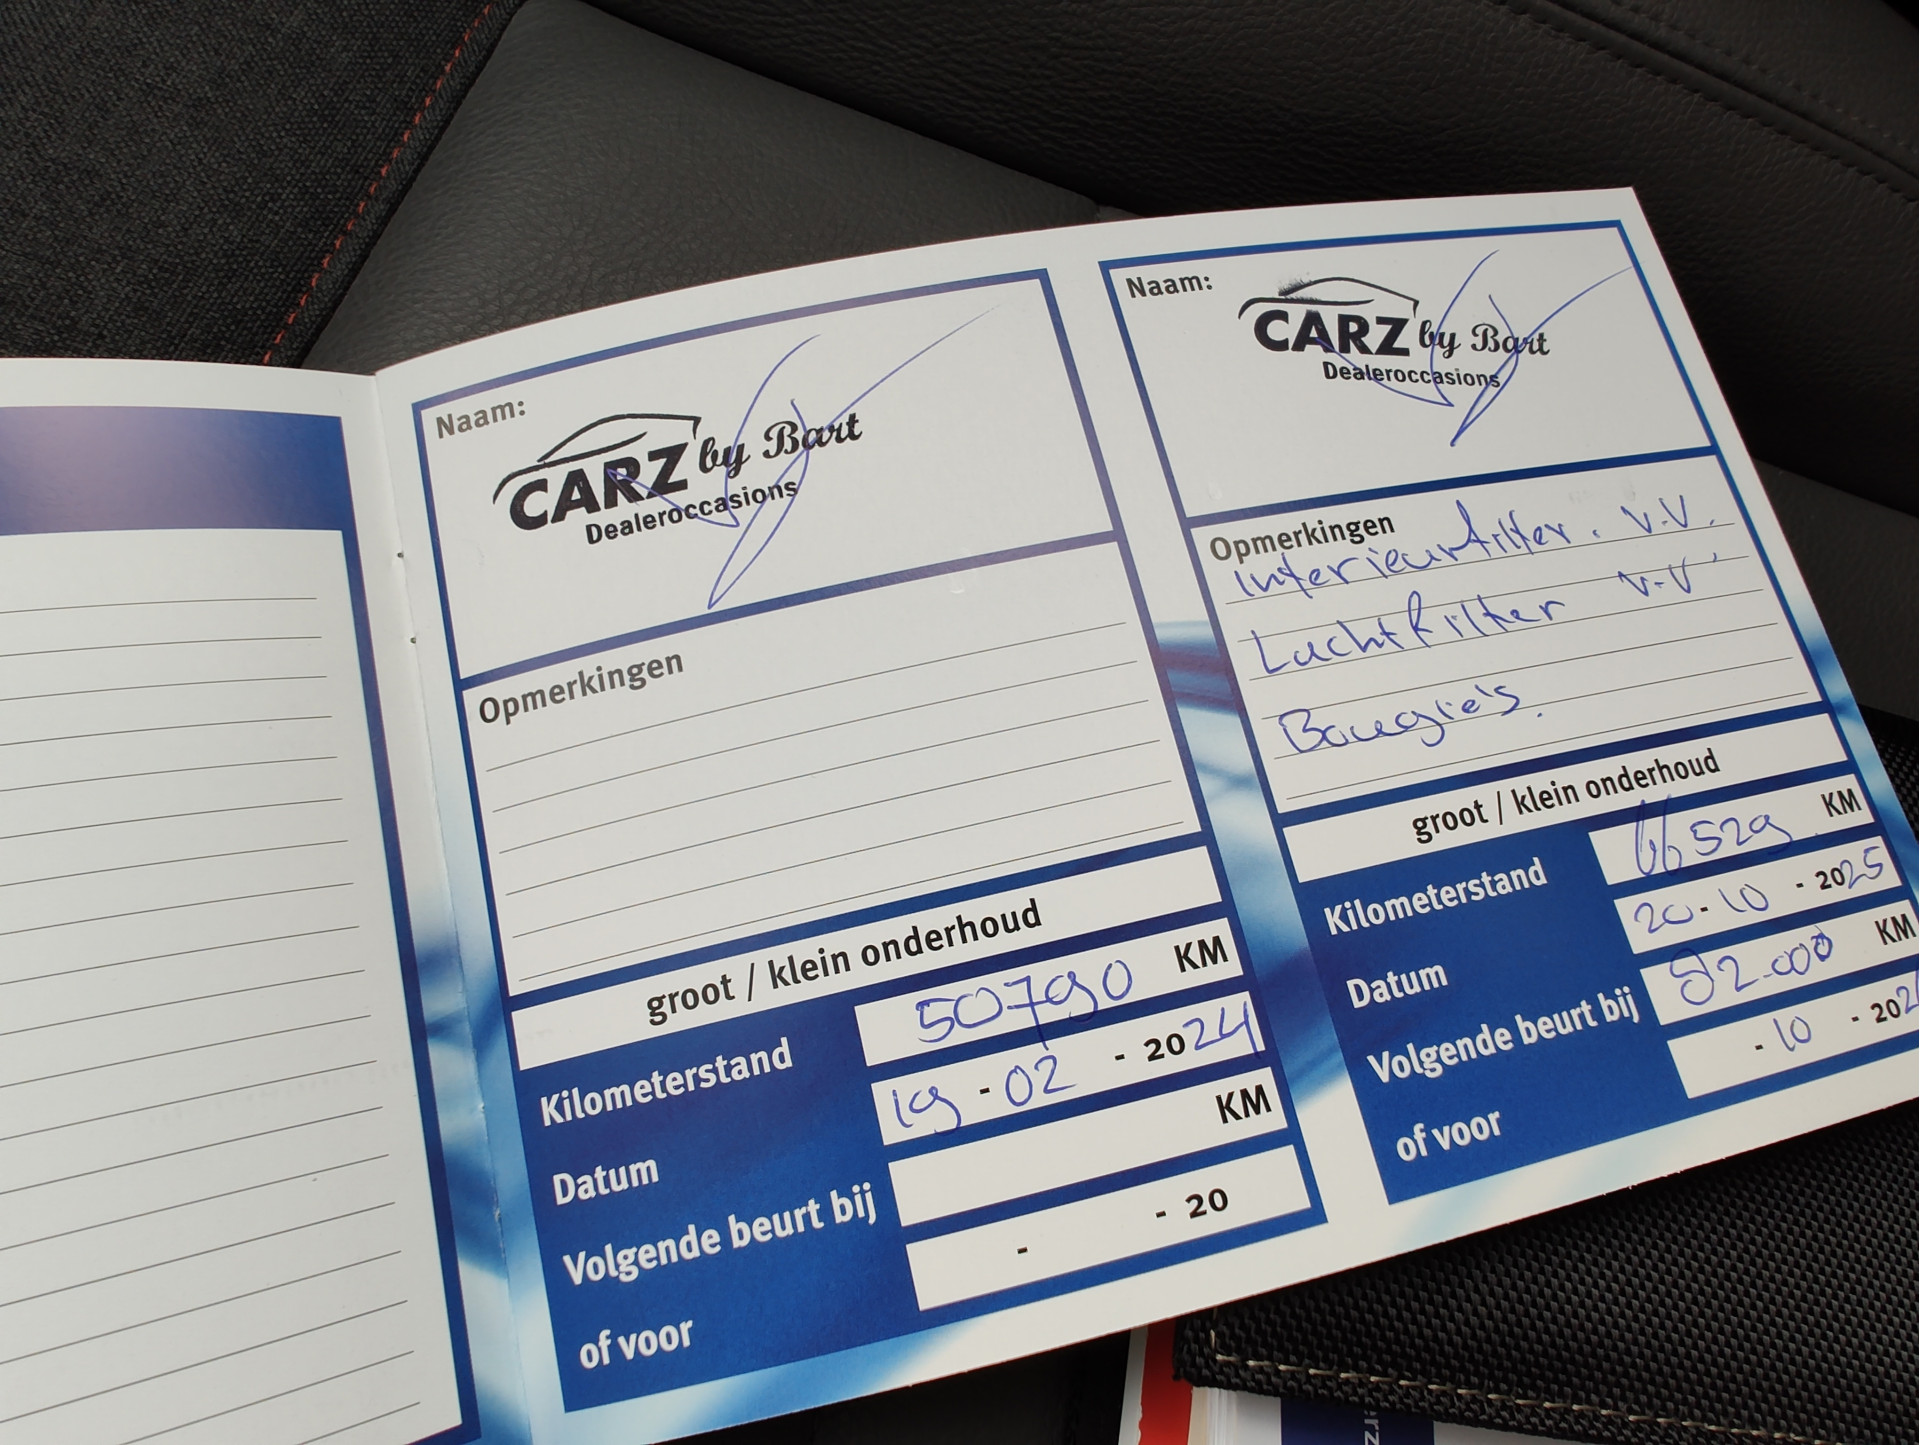 Naam:
CARZ by Bart
Dealeroccasions
Opmerkingen
groot / klein onderhoud
Kilometerstand 50790 KM
Datum 19 - 02 - 2024
Volgende beurt bij KM
of voor - - 20
Naam:
CARZ by Bart
Dealeroccasions
Opmerkingen
Interieurfilter. v.v.
Luchtfilter v.v.
Bougie's.
groot / klein onderhoud
Kilometerstand 66529 KM
Datum 20 - 10 - 2025
Volgende beurt bij 82.000 KM
of voor - 10 - 202